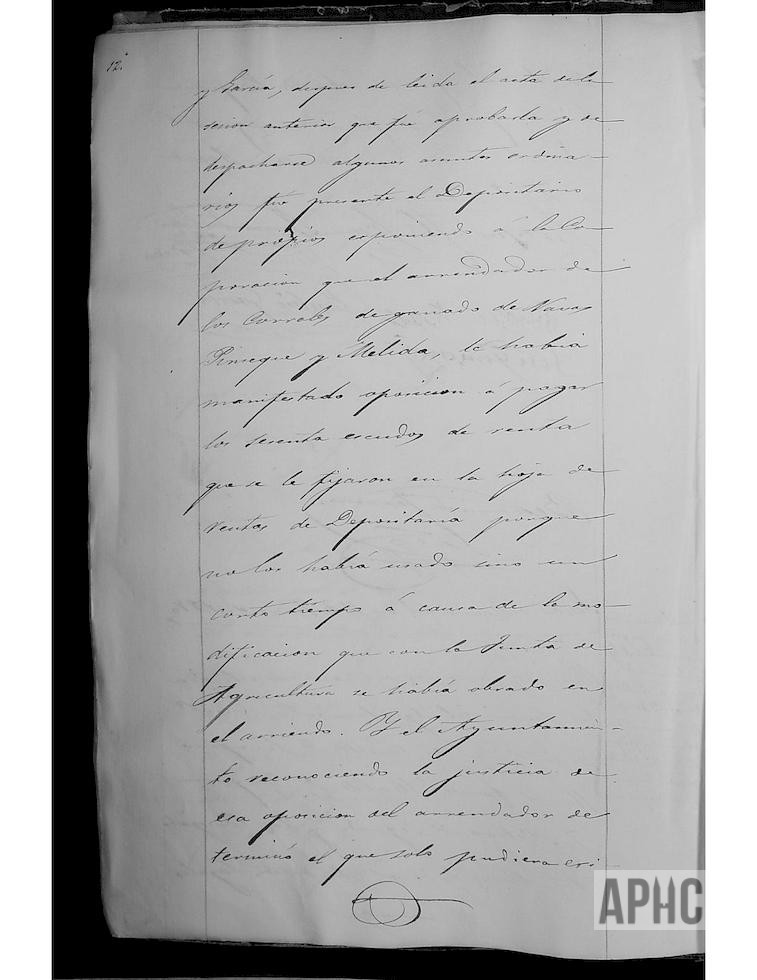 12.
y García, despues de leida el acta de la
sesion anterior que fué aprobada y de
despacharse algunos asuntos ordina-
rios fué presente el Depositario
de propios exponiendo á la Co-
poracion que el arrendador de
los Corrales de ganado de Navas
Pinseque y Melida, le habia
manifestado oposicion á pagar
los sesenta escudos de renta
que se le fijaron en la hoja de
rentas de Depositaría porque
no los habia usado sino un
corto tiempo á causa de la mo-
dificacion que con la Junta de
Agricultura se habia obrado en
el arriendo. Y el Ayuntamien-
to reconociendo la justicia de
esa oposicion del arrendador de
terminó el que solo pudiera exi-
APHC